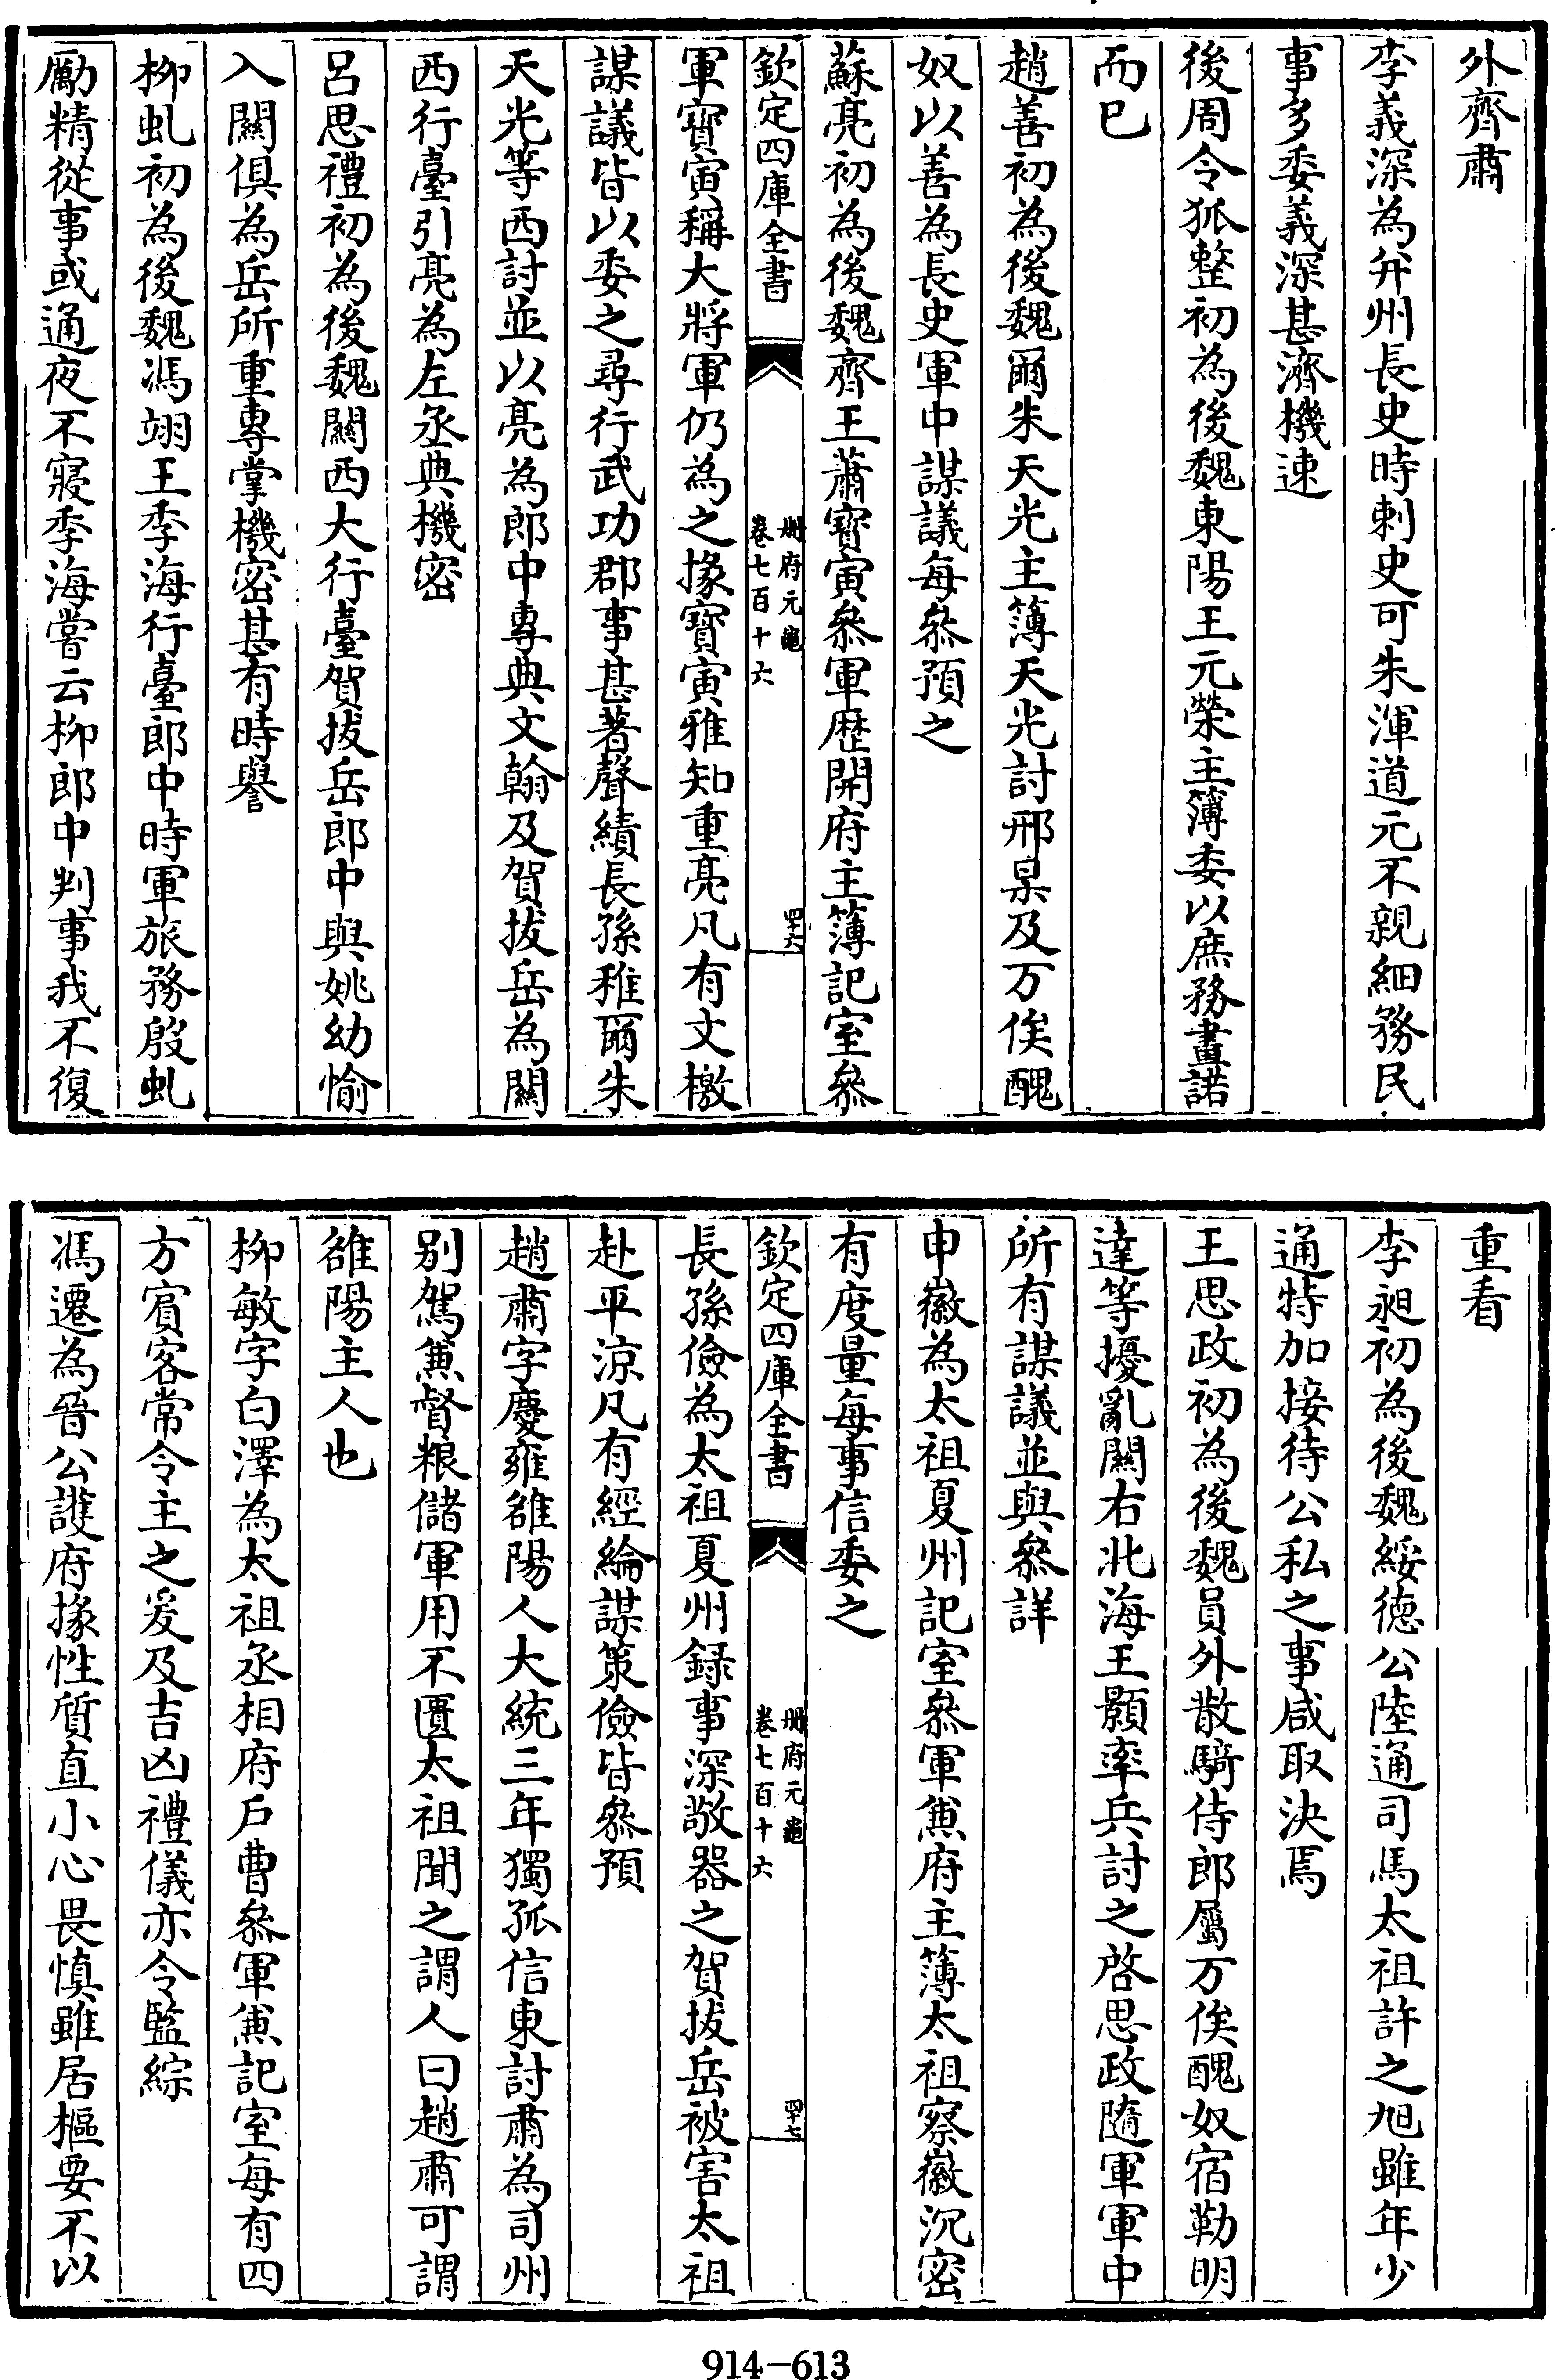 外齊肅
李義深為并州長史時刺史可朱渾道元不親細務民
事多委義深甚濟機速
後周令狐整初為後魏東陽王元榮主簿委以庶務畫諾
而已
趙善初為後魏爾朱天光主簿天光討邢杲及万俟醜
奴以善為長史軍中謀議每叅預之
蘇亮初為後魏齊王蕭寶寅叅軍歴開府主簿記室叅
欽定四庫全書
冊府元龜
卷七百十六
四十六
軍寶寅稱大將軍仍為之掾寶寅雅知重亮凡有文檄
謀議皆以委之尋行武功郡事甚著聲績長孫稚爾朱
天光等西討並以亮為郎中專典文翰及賀拔岳為關
西行臺引亮為左丞典機密
呂思禮初為後魏關西大行臺賀拔岳郎中與姚幼愉
入關俱為岳所重專掌機密甚有時譽
柳虬初為後魏馮翊王季海行臺郎中時軍旅務殷虬
勵精從事或通夜不寢季海嘗云柳郎中判事我不復
重看
李昶初為後魏綏德公陸通司馬太祖許之旭雖年少
通特加接待公私之事咸取決焉
王思政初為後魏員外散騎侍郎屬万俟醜奴宿勒明
達等擾亂關右北海王顥率兵討之啓思政隨軍軍中
所有謀議並與叅詳
申徽為太祖夏州記室叅軍兼府主簿太祖察徽沉密
有度量每事信委之
欽定四庫全書
冊府元龜
卷七百十六
四十七
長孫儉為太祖夏州録事深敬器之賀拔岳被害太祖
赴平涼凡有經綸謀策儉皆叅預
趙肅字慶雍雒陽人大統三年獨孤信東討肅為司州
别駕兼督粮儲軍用不匱太祖聞之謂人曰趙肅可謂
雒陽主人也
柳敏字白澤為太祖丞相府戶曹叅軍兼記室每有四
方賓客常令主之爰及吉凶禮儀亦令監綜
馮遷為晉公護府掾性質直小心畏慎雖居樞要不以
914-613